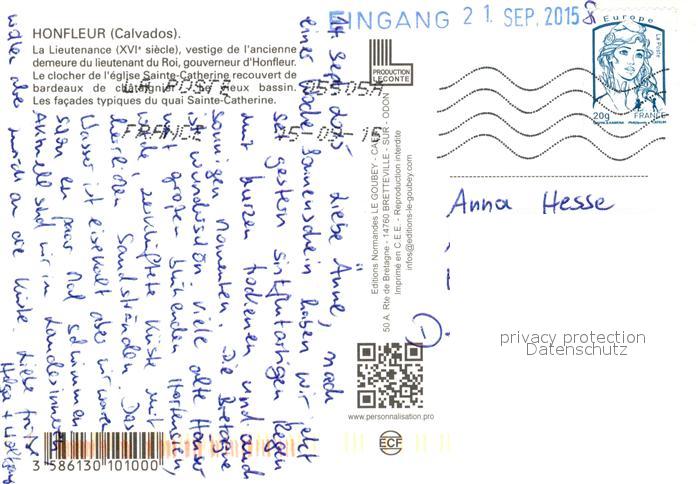 EINGANG 21. SEP. 2015
HONFLEUR (Calvados).
La Lieutenance (XVIᵉ siècle), vestige de l'ancienne
demeure du lieutenant du Roi, gouverneur d'Honfleur.
Le clocher de l'église Sainte-Catherine recouvert de
bardeaux de châtaignier. Le vieux bassin.
Les façades typiques du quai Sainte-Catherine.
LA POSTE 05505A
FRANCE 15-09-15
PRODUCTION
LECONTE
Europe
La Poste
20g FRANCE
14. Sept. 2015 Liebe Anne, nach
einer Woche Sonnenschein haben wir jetzt
seit gestern sintflutartigen Regen
mit kurzen trockenen und auch
sonnigen Momenten. Die Bretagne
ist wunderschön viele alte Häuser
mit großen blühenden Hortensien,
wilde, zerklüftete Küste mit
herrlichen Sandstränden. Das
Wasser ist eiskalt aber wir waren
schon ein paar Mal schwimmen
Aktuell sind wir im Landesinneren
wollen aber zurück an die Küste. Liebe Grüße
Helga +
Editions Normandes LE GOUBEY - CAEN
50 A, Rte de Bretagne - 14760 BRETTEVILLE - SUR - ODON
Imprimé en C.E.E. - Reproduction interdite
infos@editions-le-goubey.com
Anna Hesse
privacy protection
Datenschutz
www.personnalisation.pro
ECF
3 586130 101000